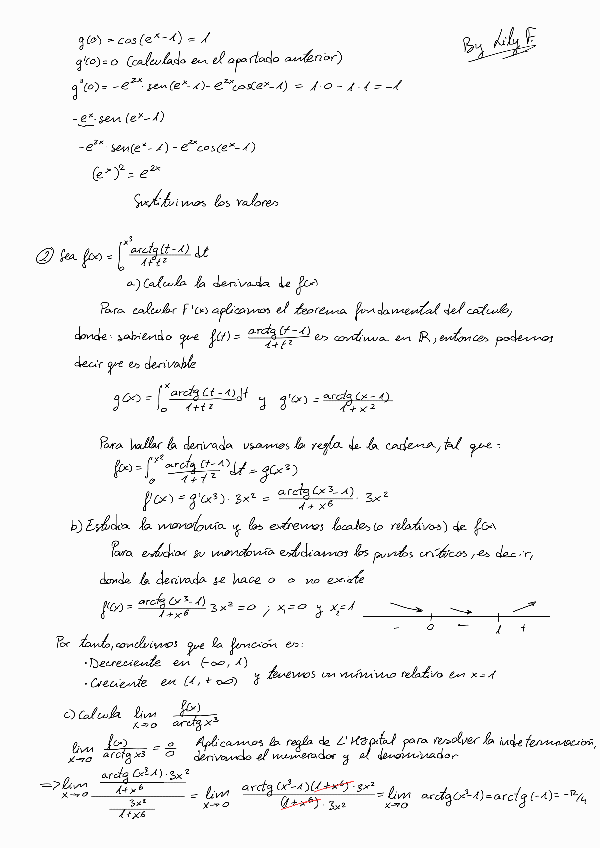 By Lily F.
g(0) = cos(eˣ-1) = 1
g'(0) = 0 (calculada en el apartado anterior)
g''(0) = -e²ˣ · sen(eˣ-1) - e²ˣcos(eˣ-1) = 1·0 - 1·1 = -1
-eˣ · sen(eˣ-1)
-e²ˣ sen(eˣ-1) - e²ˣ cos(eˣ-1)
(eˣ)² = e²ˣ
Sustituimos los valores
② Sea f(x) = ∫₀^x³ arctg(t-1)/1+t² dt
a) Calcula la derivada de f(x)
Para calcular F'(x) aplicamos el teorema fundamental del cálculo,
donde sabiendo que f(t) = arctg(t-1)/1+t² es continua en ℝ, entonces podemos
decir que es derivable
g(x) = ∫₀^x arctg(t-1)/1+t² dt y g'(x) = arctg(x-1)/1+x²
Para hallar la derivada usamos la regla de la cadena, tal que:
f(x) = ∫₀^x³ arctg(t-1)/1+t² dt = g(x³)
f'(x) = g'(x³) · 3x² = arctg(x³-1)/1+x⁶ · 3x²
b) Estudia la monotonía y los extremos locales (o relativos) de f(x)
Para estudiar su monotonía estudiamos los puntos críticos, es decir,
donde la derivada se hace 0 o no existe
f'(x) = arctg(x³-1)/1+x⁶ 3x² = 0 ; x₁=0 y x₂=1
- 0 - 1 +
Por tanto, concluimos que la función es:
· Decreciente en (-∞, 1)
· Creciente en (1, +∞) y tenemos un mínimo relativo en x=1
c) Calcula lim x→0 f(x)/arctg x³
lim x→0 f(x)/arctg x³ = 0/0 Aplicamos la regla de L'Hôpital para resolver la indeterminación,
derivando el numerador y el denominador
=> lim x→0 arctg(x³-1)·3x²/1+x⁶ / 3x²/1+x⁶ = lim x→0 arctg(x³-1)(1+x⁶)·3x²/(1+x⁶)·3x² = lim x→0 arctg(x³-1) = arctg(-1) = -π/4